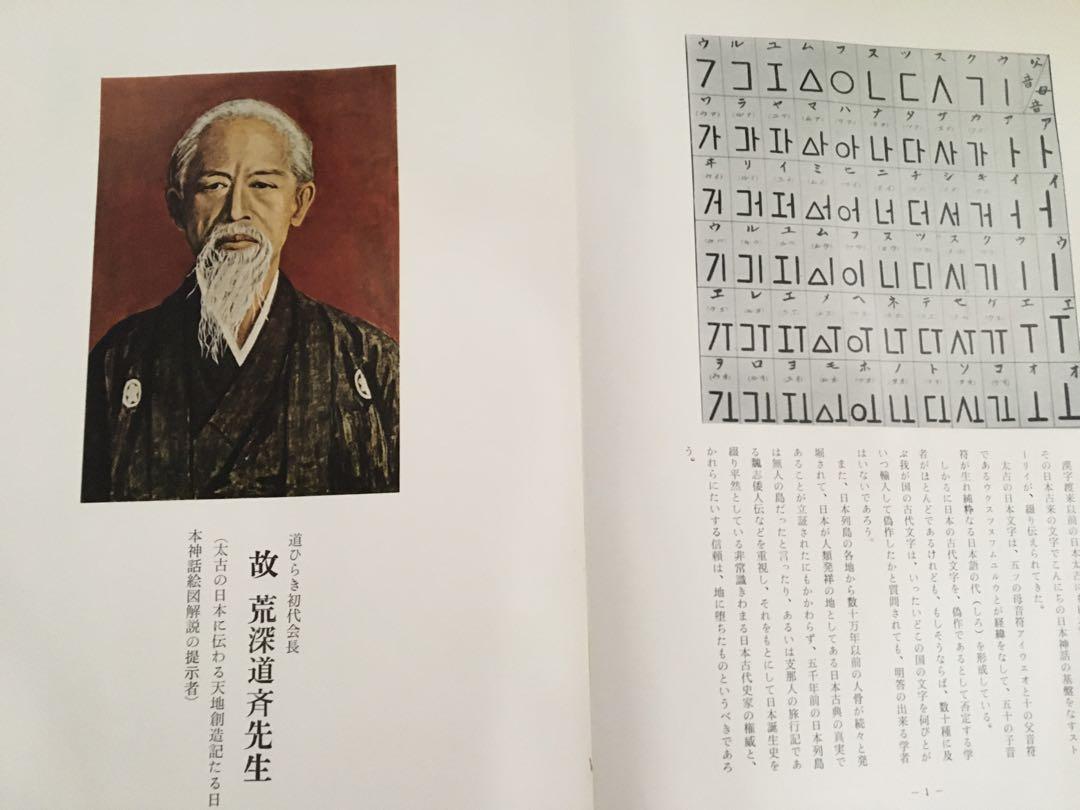 ウ ル ユ ム フ ス ツ ス ク ウ 父音 母音
ワ ラ ヤ マ ハ ナ タ サ カ ア ア
ヰ リ イ ミ ヒ ニ チ シ キ イ イ
ウ ル ユ ム フ ス ツ ス ク ウ ウ
ヱ レ エ メ ヘ ネ テ セ ケ エ エ
ヲ ロ ヨ モ ホ ノ ト ソ コ オ オ
漢字渡来以前の日本太古に
その日本古来の文字でこんにちの日本神話の基盤をなすスト
ーリイが、綴り伝えられてきた。
太古の日本文字は、五ツの母音符アイウェオと十の父音符
であるウクスツヌフムユルウとが経緯をなして、五十の子音
符が生れ純粋なる日本語の代（しろ）を形成している。
しかるに日本の古代文字を、偽作であるとして否定する学
者がほとんどであるけれども、もしそうならば、数十種に及
ぶ我が国の古代文字は、いったいどこの国の文字を何びとが
いつ輸入して偽作したかと質問されても、明答の出来る学者
はいないであろう。
また、日本列島の各地から数十万年以前の人骨が続々と発
掘されて、日本が人類発祥の地としてある日本古典の真実で
あることが立証されたにもかかわらず、五千年前の日本列島
は無人の島だったと言ったり、あるいは支那人の旅行記であ
る魏志倭人伝などを重視し、それをもとにして日本誕生史を
綴り平然としている非常識きわまる日本古代史家の権威と、
かれらにたいする信頼は、地に堕ちたものというべきであろ
う。
— 1 —
道ひらき初代会長
故 荒深道斉先生
（太古の日本に伝わる天地創造記たる日
本神話絵図解説の提示者）